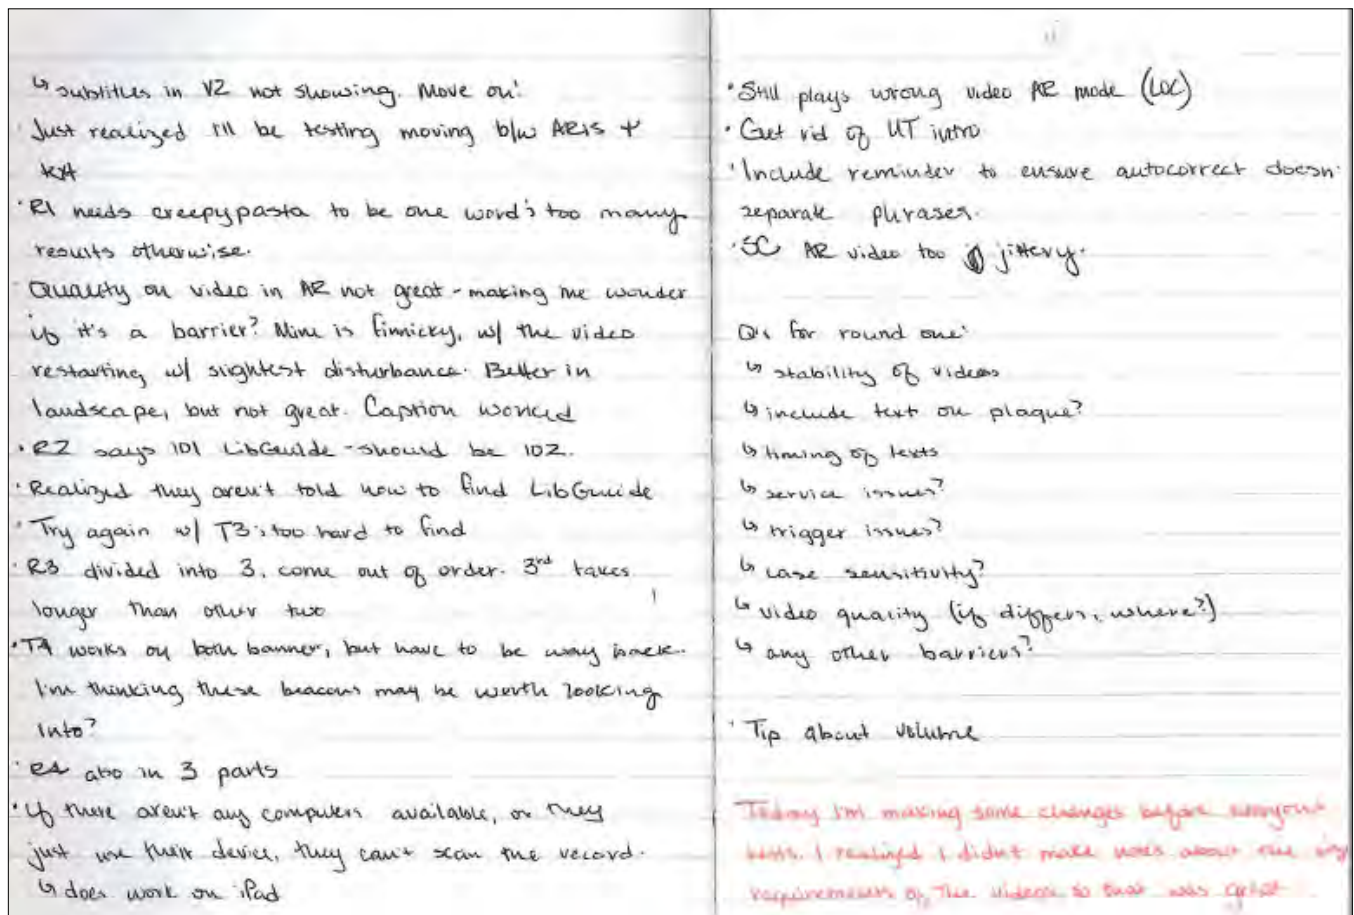 ↳ subtitles in V2 not showing. Move on!
· Just realized I'll be testing moving b/w ARIS +
text
· R1 needs creepypasta to be one word; too many
results otherwise.
· Quality on video in AR not great - making me wonder
if it's a barrier? Mine is finnicky, w/ the video
restarting w/ slightest disturbance. Better in
landscape, but not great. Caption worked
· R2 says 101 LibGuide - should be 102.
· Realized they aren't told how to find LibGuide
· Try again w/ T3; too hard to find
· R3 divided into 3, come out of order. 3rd takes
longer than other two
· T4 works on both banner, but have to be way back.
I'm thinking these beacons may be worth looking
into?
· R4 also in 3 parts
· If there aren't any computers available, or they
just use their device, they can't scan the record.
↳ does work on iPad
· Still plays wrong video AR mode (LOC)
· Get rid of UT intro
· Include reminder to ensure autocorrect doesn
separate phrases.
· SC AR video too jittery.
Q's for round one:
↳ stability of videos
↳ include text on plaque?
↳ timing of texts
↳ service issues?
↳ trigger issues?
↳ case sensitivity?
↳ video quality (if differs, where?)
↳ any other barriers?
· Tip about volume
Today I'm making some changes before everyone
tests. I realized I didn't make notes about the
requirements of the videos so that was great